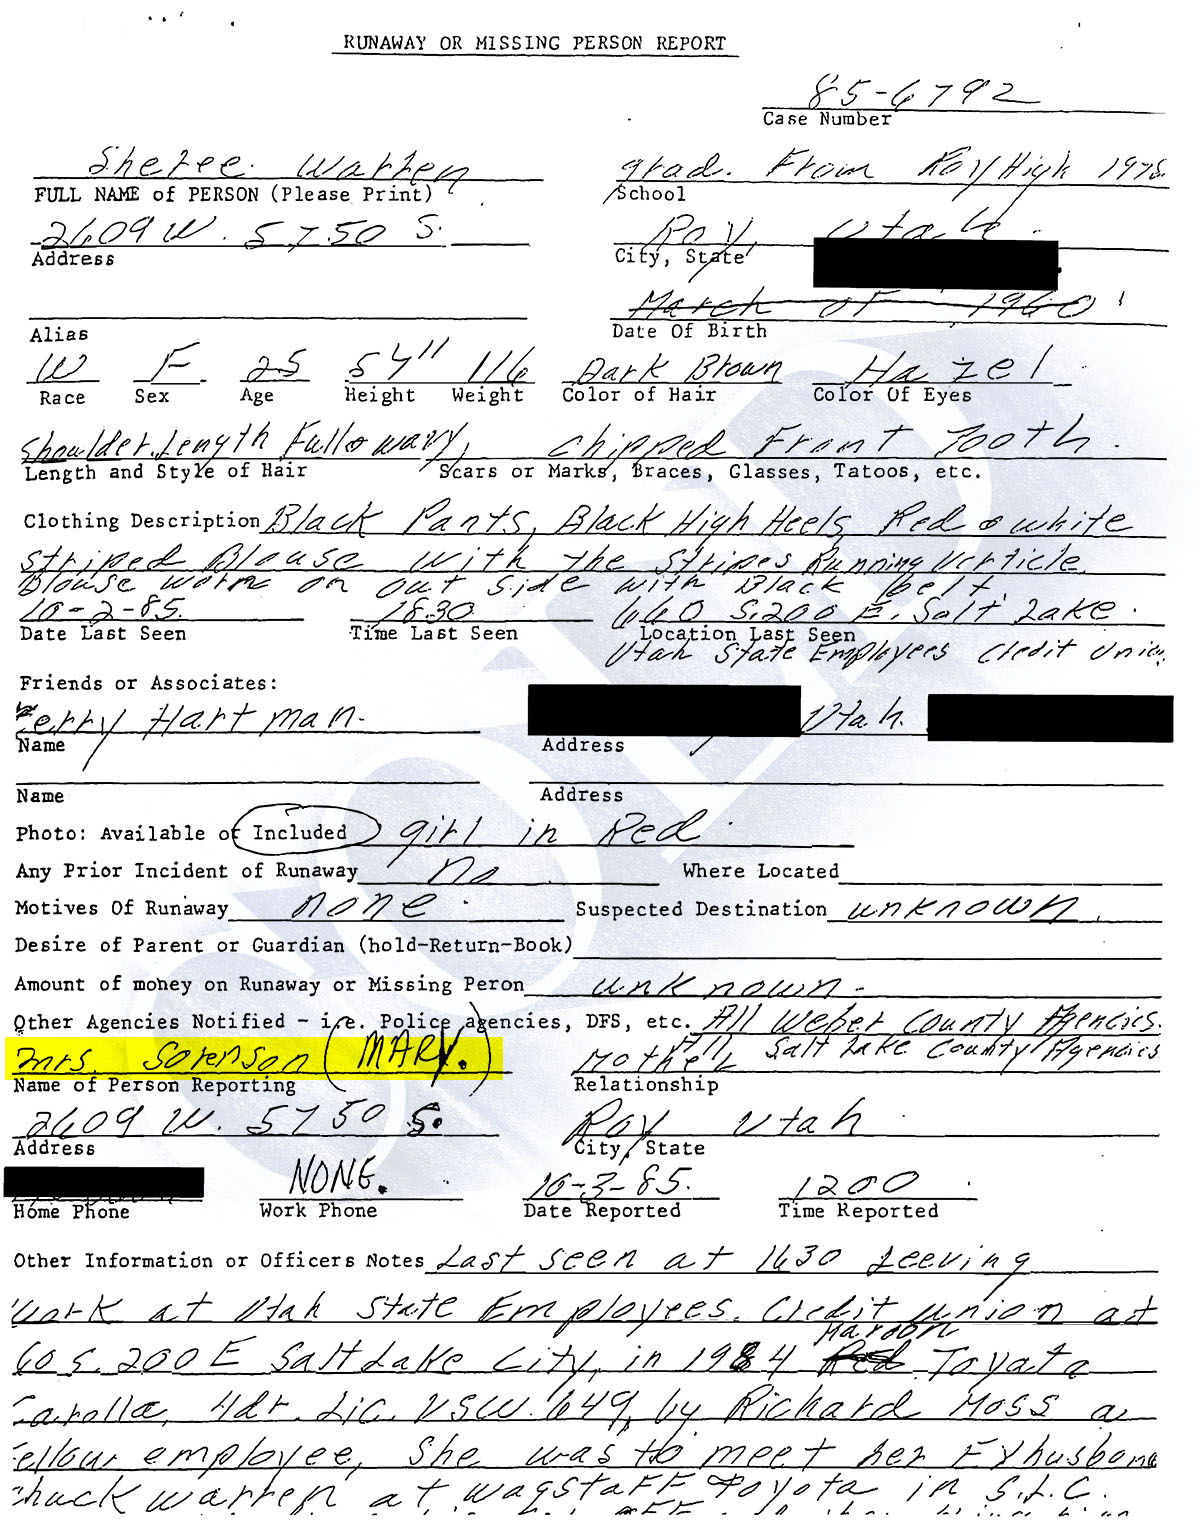 RUNAWAY OR MISSING PERSON REPORT
85-6792
Case Number
Sheree Warren grad. From Roy High 1978.
FULL NAME of PERSON (Please Print) School
2609 W. 5750 S. Roy, Utah.
Address City, State
March of 1960
Alias Date Of Birth
W F 25 5'4" 116 Dark Brown Hazel
Race Sex Age Height Weight Color of Hair Color Of Eyes
Shoulder Length Full & wavy, chipped Front Tooth.
Length and Style of Hair Scars or Marks, Braces, Glasses, Tatoos, etc.
Clothing Description Black Pants, Black High Heels, Red & white
striped Blouse with the stripes Running Verticle.
Blouse worne on out side with Black belt.
10-2-85. 1830 660 S. 200 E. Salt Lake.
Date Last Seen Time Last Seen Location Last Seen
Utah State Employees Credit Union.
Friends or Associates:
erry Hartman. Utah.
Name Address
Name Address
Photo: Available or Included girl in Red.
Any Prior Incident of Runaway No Where Located
Motives Of Runaway none. Suspected Destination unknown.
Desire of Parent or Guardian (hold-Return-Book)
Amount of money on Runaway or Missing Peron unknown.
Other Agencies Notified - i.e. Police agencies, DFS, etc. All Weber County Agencies.
All Salt Lake County Agencies
Mrs. Sorenson (MARY.) Mother
Name of Person Reporting Relationship
2609 W. 5750 S. Roy Utah.
Address City, State
NONE. 10-3-85. 1200.
Home Phone Work Phone Date Reported Time Reported
Other Information or Officers Notes Last seen at 1630 Leeving
work at Utah State Employees. Credit union at
60 S. 200 E Salt Lake City, in 1984 Maroon Red Toyata
Carolla, 4dr. Lic. VSW. 649, by Richard Moss a
ellow employee, She was to meet her Exhusband
huck Warren at Wagstaff Toyota in S.L.C.